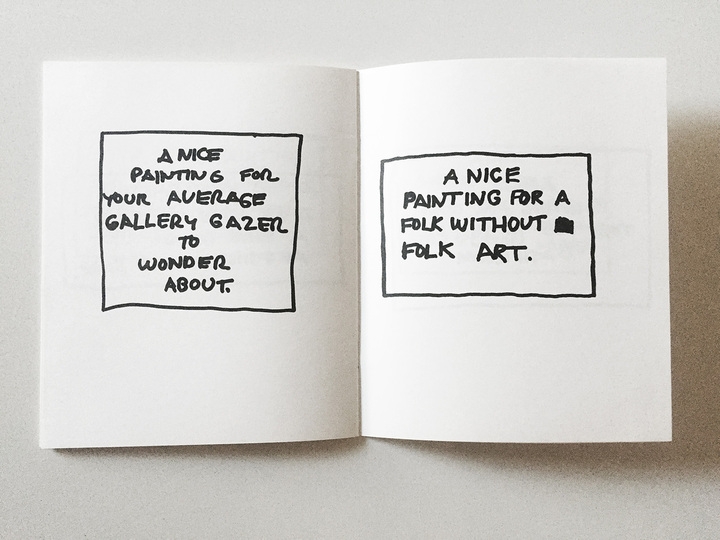 A NICE
PAINTING FOR
YOUR AVERAGE
GALLERY GAZER
TO
WONDER
ABOUT.
A NICE
PAINTING FOR A
FOLK WITHOUT
FOLK ART.